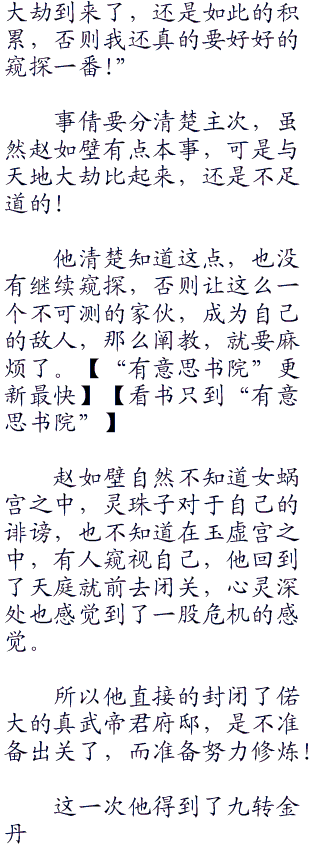 大劫到来了，还是如此的积
累，否则我还真的要好好的
窥探一番！”
事情要分清楚主次，虽
然赵如壁有点本事，可是与
天地大劫比起来，还是不足
道的！
他清楚知道这点，也没
有继续窥探，否则让这么一
个不可测的家伙，成为自己
的敌人，那么阐教，就要麻
烦了。【“有意思书院”更
新最快】【看书只到“有意
思书院”】
赵如壁自然不知道女蜗
宫之中，灵珠子对于自己的
诽谤，也不知道在玉虚宫之
中，有人窥视自己，他回到
了天庭就前去闭关，心灵深
处也感觉到了一股危机的感
觉。
所以他直接的封闭了偌
大的真武帝君府邸，是不准
备出关了，而准备努力修炼！
这一次他得到了九转金
丹